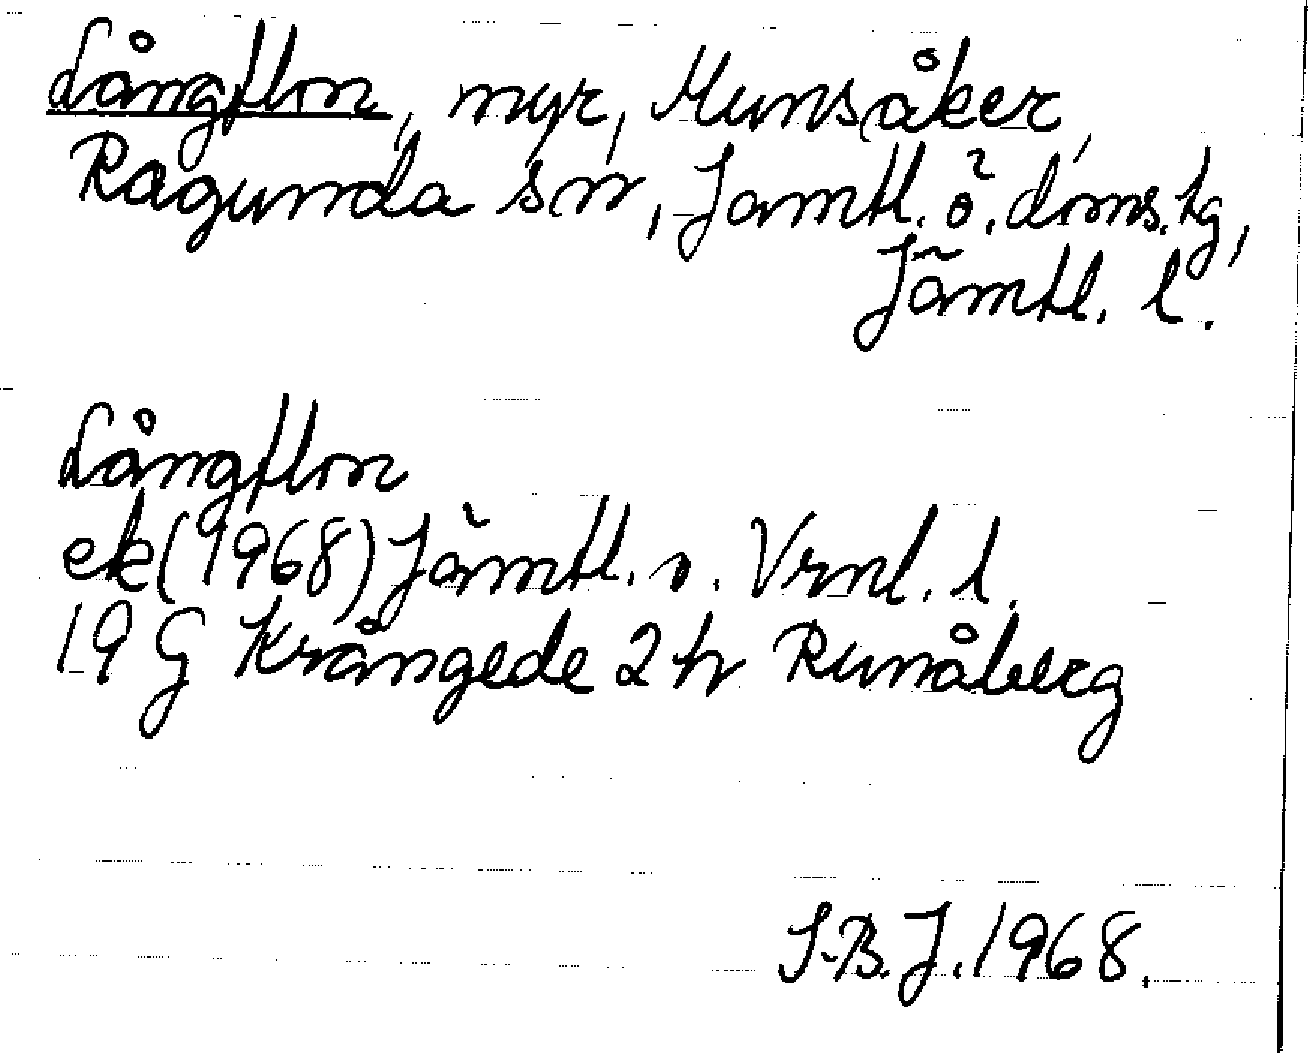 Långflon, myr, Munsåker,
Ragunda sn, Jämtl. ö. doms. tg,
Jämtl. l.
Långflon
ek (1968) Jämtl. o. Vrnl. l.
19 G Krångede 2 h Runåberg
S-B.J. 1968.